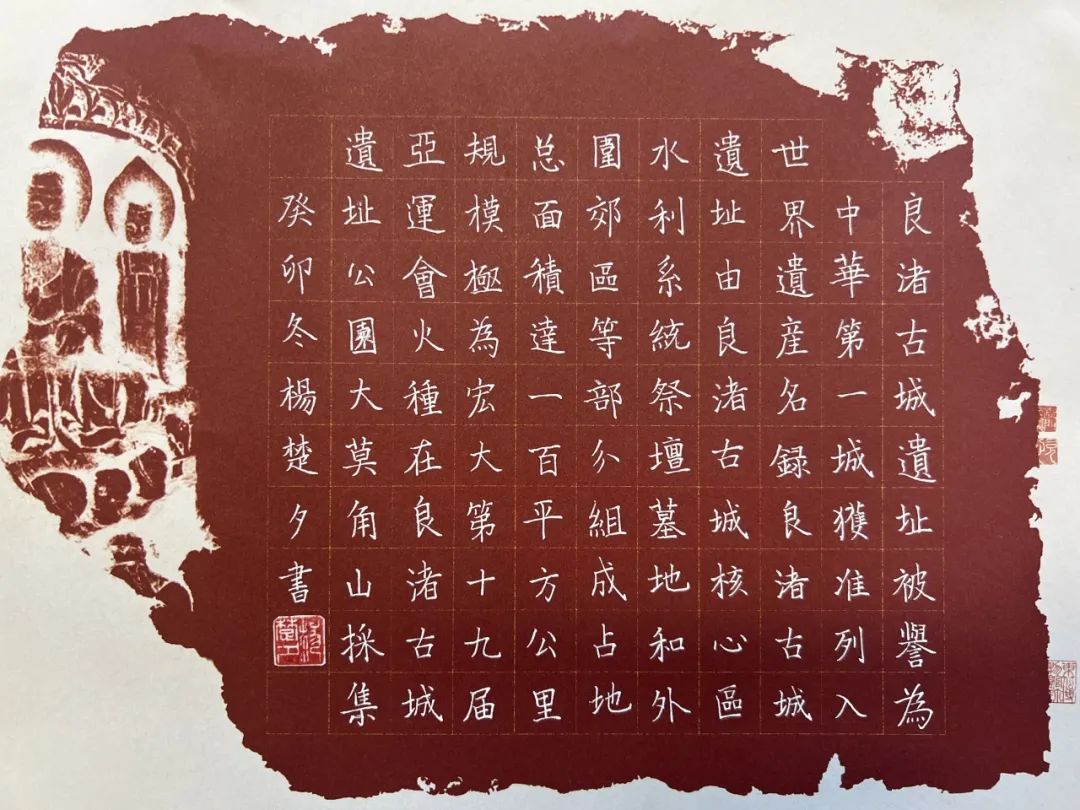 良渚古城遺址被譽為
中華第一城獲准列入
世界遺産名録良渚古城
遺址由良渚古城核心區
水利系統祭壇墓地和外
圍郊區等部分組成占地
总面積達一百平方公里
規模極為宏大第十九届
亞運會火種在良渚古城
遺址公園大莫角山採集
癸卯冬楊楚夕書